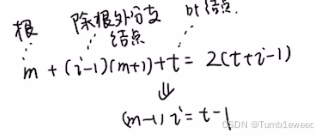 根 除根外分支结点 叶结点
m + (i-1)(m+1)+t = 2(t+i-1)
⇓
(m-1) i = t-1
CSDN @Tumb1eweec